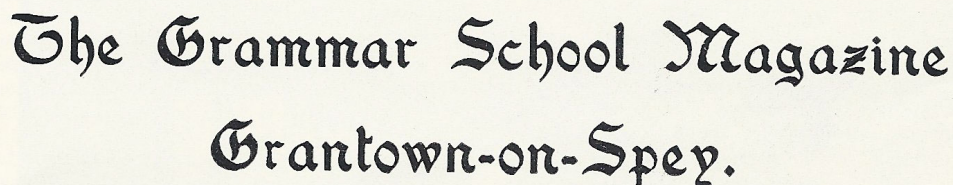 The Grammar School Magazine
Grantown-on-Spey.